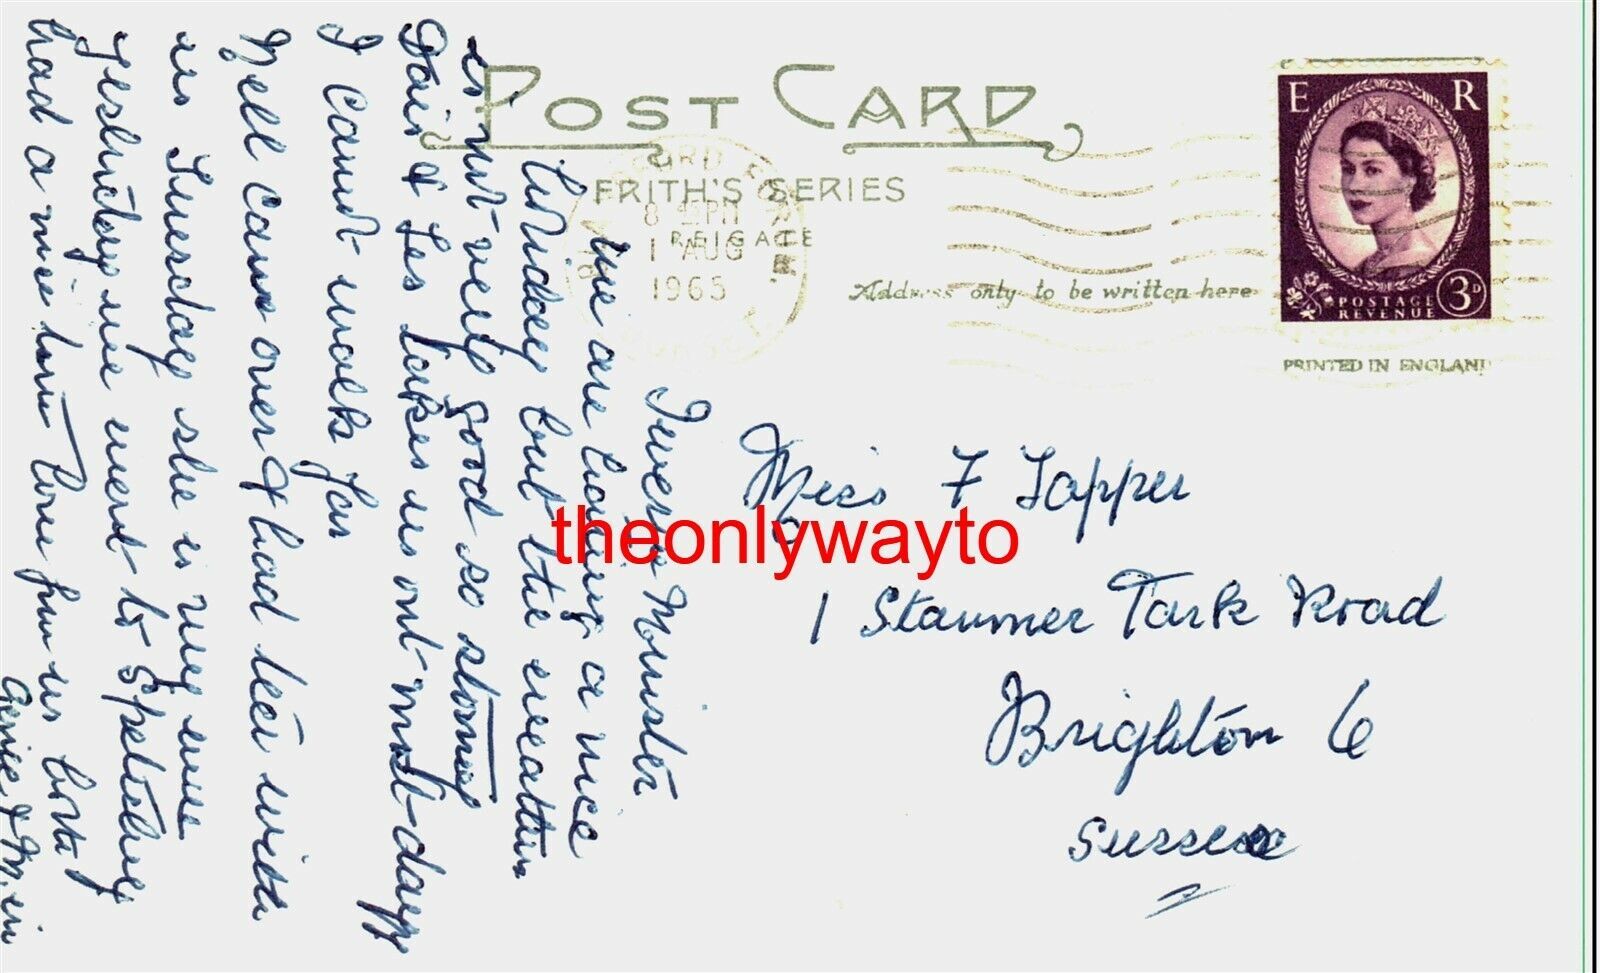 POST CARD
FRITH'S SERIES
REIGATE
8 PM
1 AUG
1965
Address only to be written here
E R
POSTAGE
REVENUE
3D
PRINTED IN ENGLAND
Miss F Tapper
1 Stanmer Park Road
Brighton 6
Sussex
theonlywayto
we are having a nice
holiday but the weather
is not very good so stormy
& Les takes us out most days
I cannot walk far
Nell came over & had tea with
us Tuesday she is very well
yesterday we went to
had a nice time love from us both